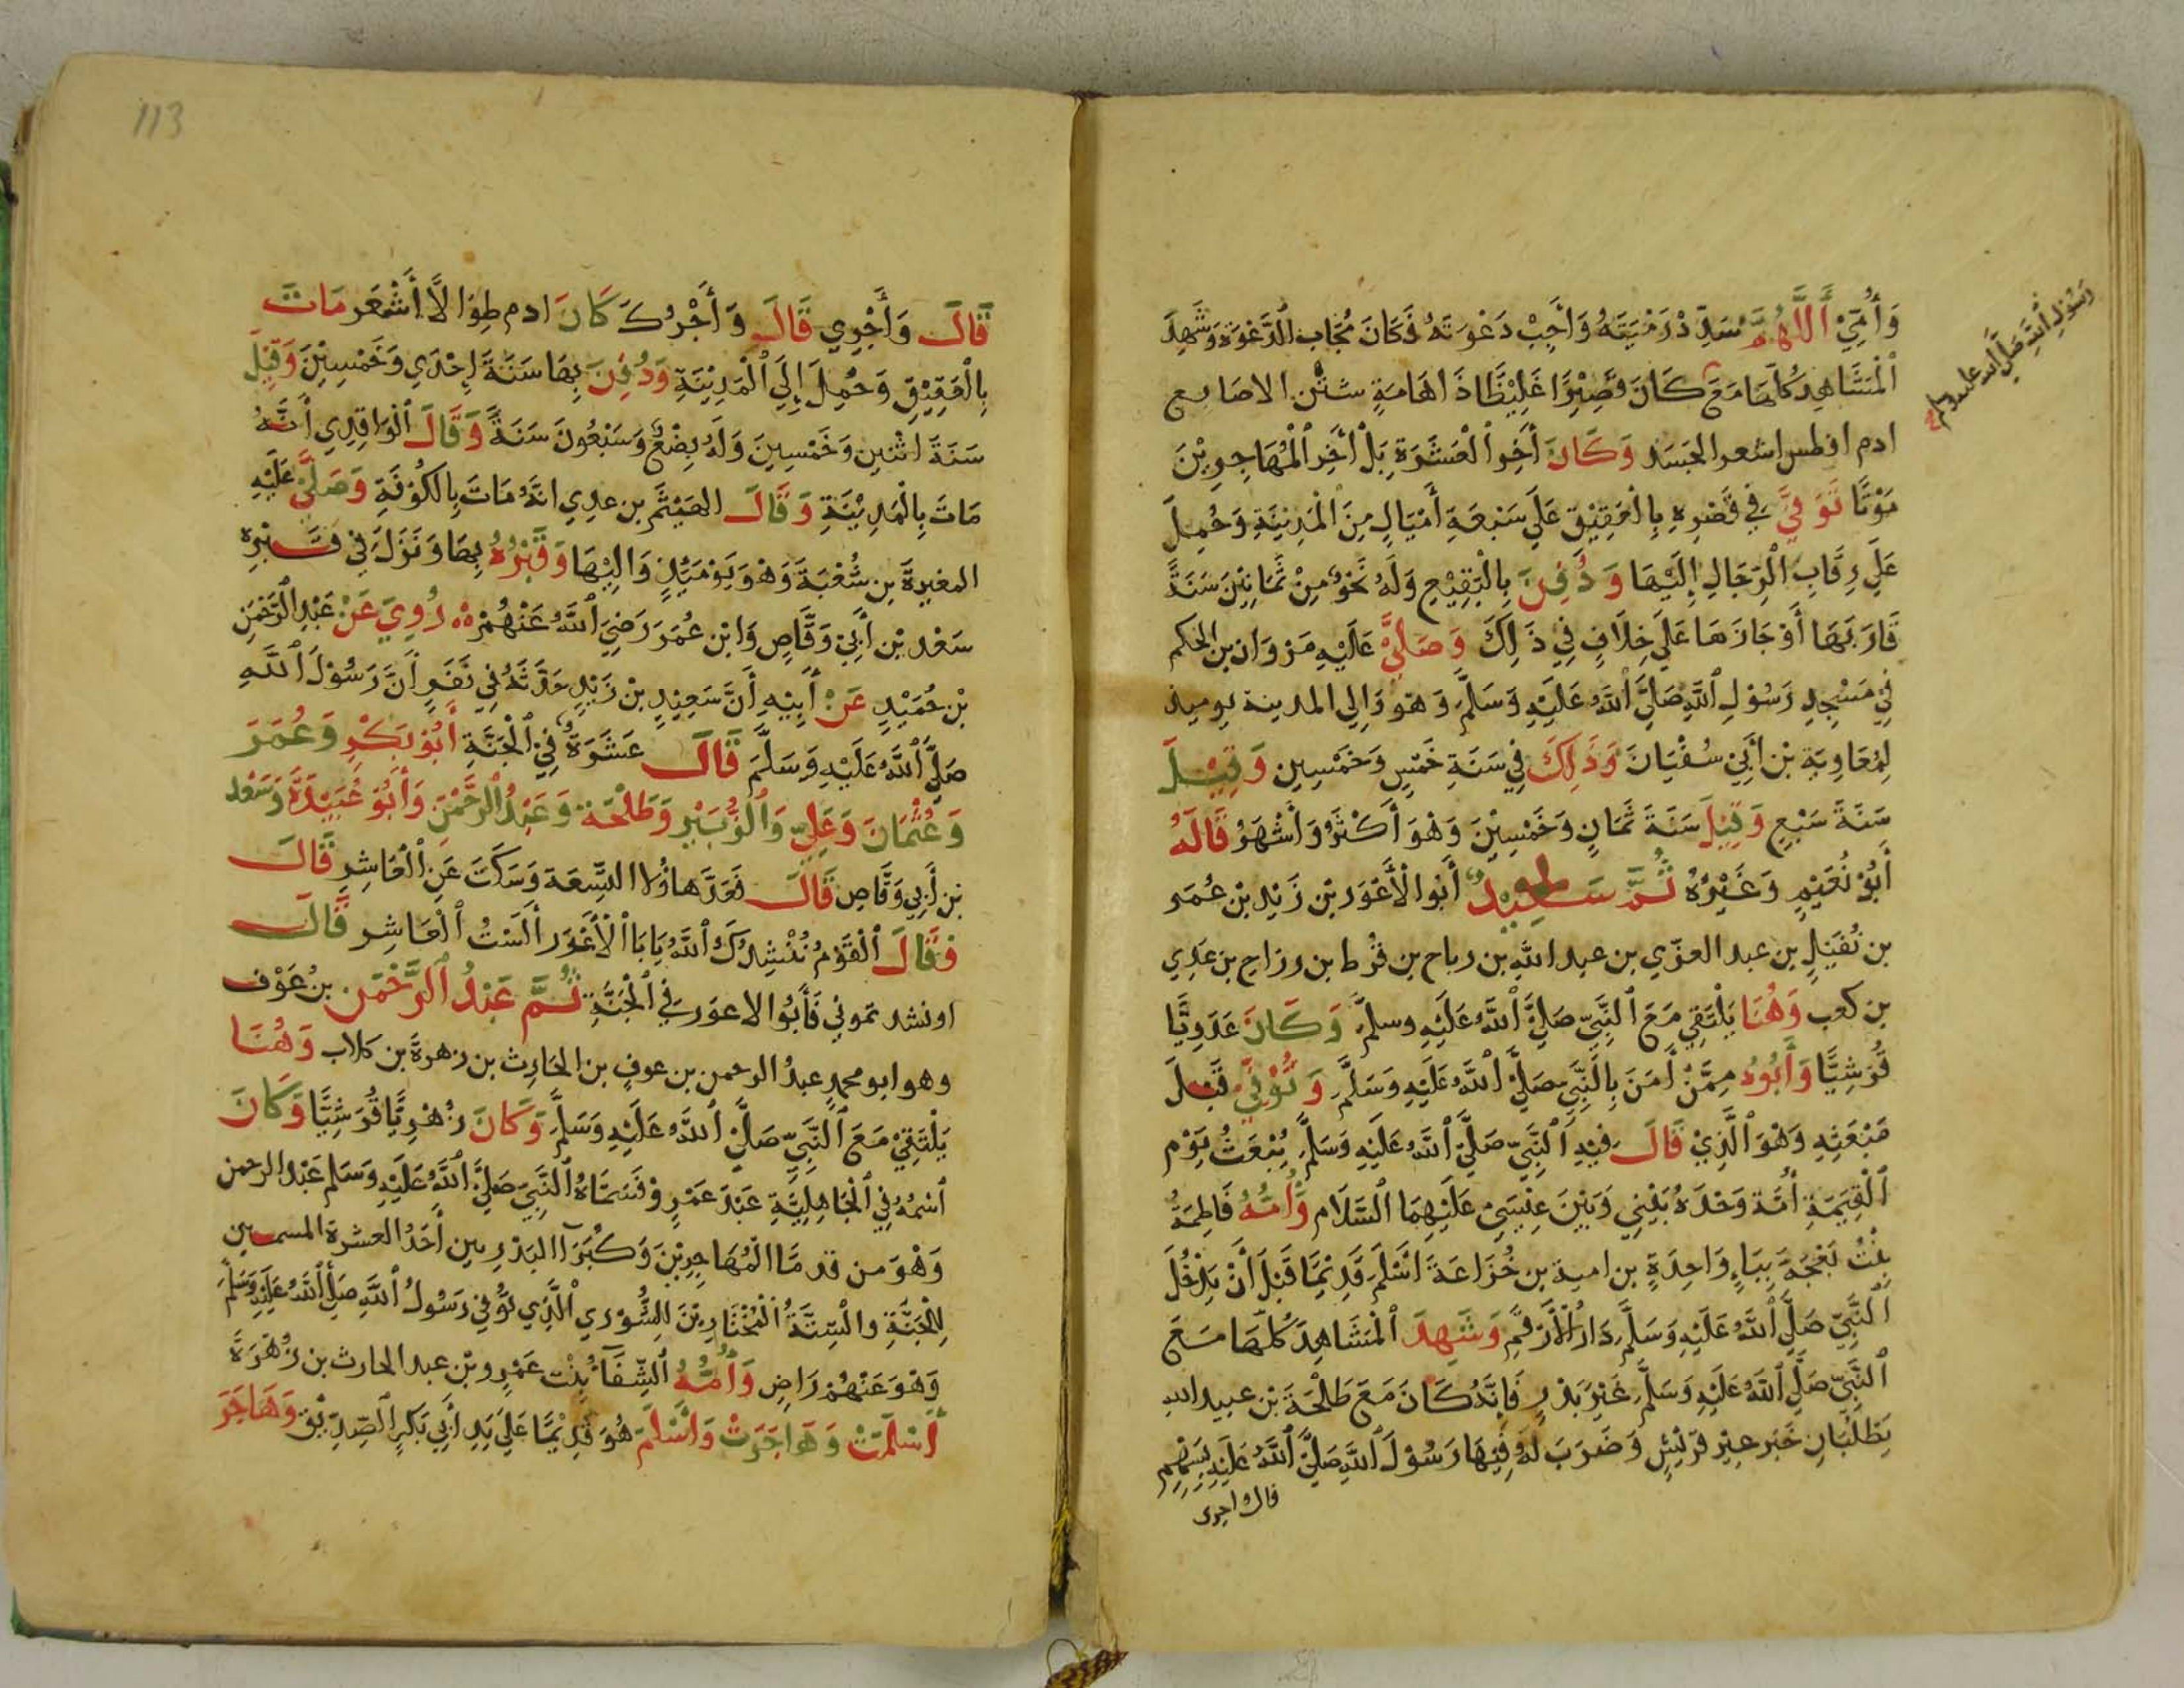 وَأُمِّيْ أَللَّهُمَّ سَدِّدْ رَمْيَتَهُ وَأَجِبْ دَعْوَتَهُ فَكَانَ مُجَابَ الدَّعْوَةِ وَشَهِدَ
الْمَشَاهِدَ كُلَّهَا مَعَ كَانَ قَصِيْرًا غَلِيْظًا ذَا هَامَةٍ شَثْنَ الاصابع
رَسُوْلِ اللَّهِ صَلَّى اللَّه عليه وسلم
ادم افطس اشعر الجَسَد وَكَانَ أَخِرَ الْعَشَرَةِ بَلْ أَخِرَ الْمُهَاجِرِيْنَ
مَوْتًا تُوَفِّيَ فِي قَصْرِهِ بِالْعَقِيْقِ عَلَى سَبْعَةِ أَمْيَالٍ مِنَ الْمَدِيْنَةِ وَحُمِلَ
عَلَى رِقَابِ الْرِّجَالِ إِلَيْهَا وَدُفِنَ بِالْبَقِيْعِ وَلَهُ نَحْوٌ مِنْ ثَمَانِيْنَ سَنَةً
قَارَبَهَا أَوْ جَازَهَا عَلَى خِلَافٍ فِي ذَلِكَ وَصَلَّى عَلَيْهِ مَرْوَان بن الحكم
فِي مَسْجِدِ رَسُوْلِ اللَّهِ صَلَّى اللَّهُ عَلَيْهِ وَسَلَّمَ وَهُوَ وَالِي المدينة يوميذ
لِمُعَاوِيَةِ بْنِ أَبِيْ سُفْيَانَ وَذَلِكَ فِي سَنَةِ خَمْسٍ وَخَمْسِيِن وَقِيْلَ
سَنَةَ سَبْعٍ وَقِيْلَ سَنَةَ ثَمَانٍ وَخَمْسِيْنَ وَهْوَ أَكْثَرُ وَأَشْهَرُ قَالَهُ
أَبُوْ نُعَيْمٍ وَغَيْرُهُ ثُمَّ سَعِيْدٌ أَبُوا الْأَعْوَرِ بْنِ زَيْدِ بْنِ عُمَر
بن نُفَيْلِ بن عبد العزّي بن عبد الله بن رباح بن قُرْط بن رزاح بن عَدِي
بن كعب وَهُنَا يَلْتَقِي مَعَ النَّبِيِّ صَلَّى اللَّهُ عَلَيْهِ وسلم وَكَانَ عَدَوِيًّا
قُرَشِيًّا وَأَبُوهُ مِمَّنْ أَمَنَ بِالنَّبِيِّ صَلَّى اللَّهُ عَلَيْهِ وَسَلَّمَ وَتُوُفِّيَ قَبْلَ
مَبْعَثِهِ وَهْوَ الَّذِيْ قَالَ فِيْهِ النَّبِيِّ صَلَّى اللَّهُ عَلَيْهِ وَسَلَّمَ يُبْعَثُ يَوْمَ
الْقِيَمَةِ أُمَّة وَحْدَهُ بَيْنِي وَبَيْنَ عِيْسَىْ عَلَيْهِمَا السَّلَام وَأُمُّهُ فَاطِمَةُ
بِنْتُ بَعْجَةَ بِبَاءٍ وَاحِدَةٍ بن امية بن خُزَاعَةَ اسْلَمَ قَدِيْمًا قَبْلَ أَنْ يَدْخُلَ
النَّبِيّ صَلَّى اللَّهُ عَلَيْهِ وَسَلَّمَ دَارَ الْأَرْقَمِ وَشَهِدَ الْمَشَاهِدَ كُلَّهَا مَعَ
النَّبِيّ صَلَّى اللَّهُ عَلَيْهِ وَسَلَّمَ غَيْرَ بَدْرٍ فَإِنَّهُ كَانَ مَعَ طَلْحَةَ بْن عبيد الله
يَطْلُبَانِ خَبَر عِيْرِ قُرَيْشٍ وَضَرَبَ لَهُ فِيْهَا رَسُوْلَ اللَّهِ صَلَّى اللَّهُ عَلَيْهِ بِسَهْمِهِ
قال واجرى
113
قَالَ وَأَجْرِي قَالَ وَأَجْرُكَ كَانَ ادم طِوَالًا أَشْعَر مَاتَ
بِالْعَقِيْقِ وَحُمِلَ إِلَى الْمَدِيْنَةِ وَدُفِنَ بِهَا سَنَةَ إِحْدَى وَخَمْسِيْنَ وَقِيْلَ
سَنَةَ اثْنَيِن وَخَمْسِيِنَ وَلَهُ بِضْعٌ وَسَبْعُونَ سَنَةً وَقَالَ الْوَاقِدِي أَنَّهُ
مَاتَ بِالْمَدِيْنَةِ وَقَالَ الهَيْثَم بن عدِي انَّهُ مَاتَ بِالكُوْفَةِ وَصَلَّىْ عَلَيْهِ
المغيرةَ بن شُعْبَةَ وَهْوَ يَوْمَئِذٍ وَالِيْهَا وَقَبْرُهُ بِهَا وَنَزَلَ فِيْ قَبْرِهِ
سَعْد بْن أَبِيْ وَقَّاصٍ وَابْن عُمَرَ رَضِيَ اللَّهُ عَنْهُمْ رُوِيَ عَنْ عَبْدِ الرَّحْمَنِ
بْنِ حُمَيْدٍ عَنْ أَبِيْهِ أَنَّ سَعِيْدٍ بْن زَيْدٍ حَدَّثَهُ فِي نَفَرٍ أَنَّ رَسُوْلَ اللَّهِ
صَلَّى اللَّهُ عَلَيْهِ وَسَلَّمَ قَالَ عَشَرَةٌ فِيْ الْجَنَّةِ أَبُوْ بَكْرٍ وَعُمَرَ
وَعُثْمَانَ وَعَلِيّ وَالزُّبَيْرِ وَطَلْحَة وَعَبْدُ الرَّحْمَن وَأَبُوْ عُبَيْدَةَ وَسَعْد
بْن أَبِي وَقَّاص قَالَ فَعَدَّ هاؤُلا التِّسعَة وَسَكَتَ عَنِ الْعَاشِر قَالَ
فَقَالَ الْقَوْمُ نُنْشِدُكَ اللَّهُ يَابَا الْأَعْوَرِ أَلَسْتُ الْعَاشِر قَالَ
اونشد تموني فَأَبُوا الاعوَر فِي الْجَنَّةِ ثُمَّ عَبْدُ الرَّحْمَن بنُ عَوْف
وهو ابو محمدٍ عبدُ الرحمن بن عوفٍ بن الحَارِث بن زهرةَ بن كلاب وَهُنَا
يَلْتَقِيْ مَعَ النَّبِيِّ صَلَّىْ اللَّهُ عَلَيْهِ وَسَلَّمَ وَكَانَ زُهْرِيًّا قُرَشِيًّا وَكَانَ
أسْمُهُ فِي الْجَاهِلِيَّةِ عَبْدَ عَمْرٍو فَسَمَّاهُ النَّبِيّ صَلَّى اللَّهُ عَلَيْهِ وَسَلم عَبْد الرحمن
وَهْوَ من قدمَّا الْمُهَاجِرِيْنَ وَكُبَرَآ البَدْرِيين أَحَدُ العشرة المسمين
لِلْجَنَّةِ والسِّتَّةُ الْمُخْتَارِيْنَ لِلشُّوْرِي الَّذِي تُوُفِّيَ رَسُوْلُ اللَّهِ صَلَّى اللَّهُ عَلَيْهِ وَسَلَّمَ
وَهْوَ عَنْهُمْ رَاضٍ وَأُمُّهُ الشِّفَآءُ بِنْت عَمْرِو بْن عبد الحارث بن زُهْرَةَ
أَسْلَمَتْ وَهَاجَرَتْ وَأَسْلَمَ هُوَ قَدِيْمًا عَلَى يَدِ أَبِي بَكْرٍ الصِّدِّيْق وَهَاجَرَ